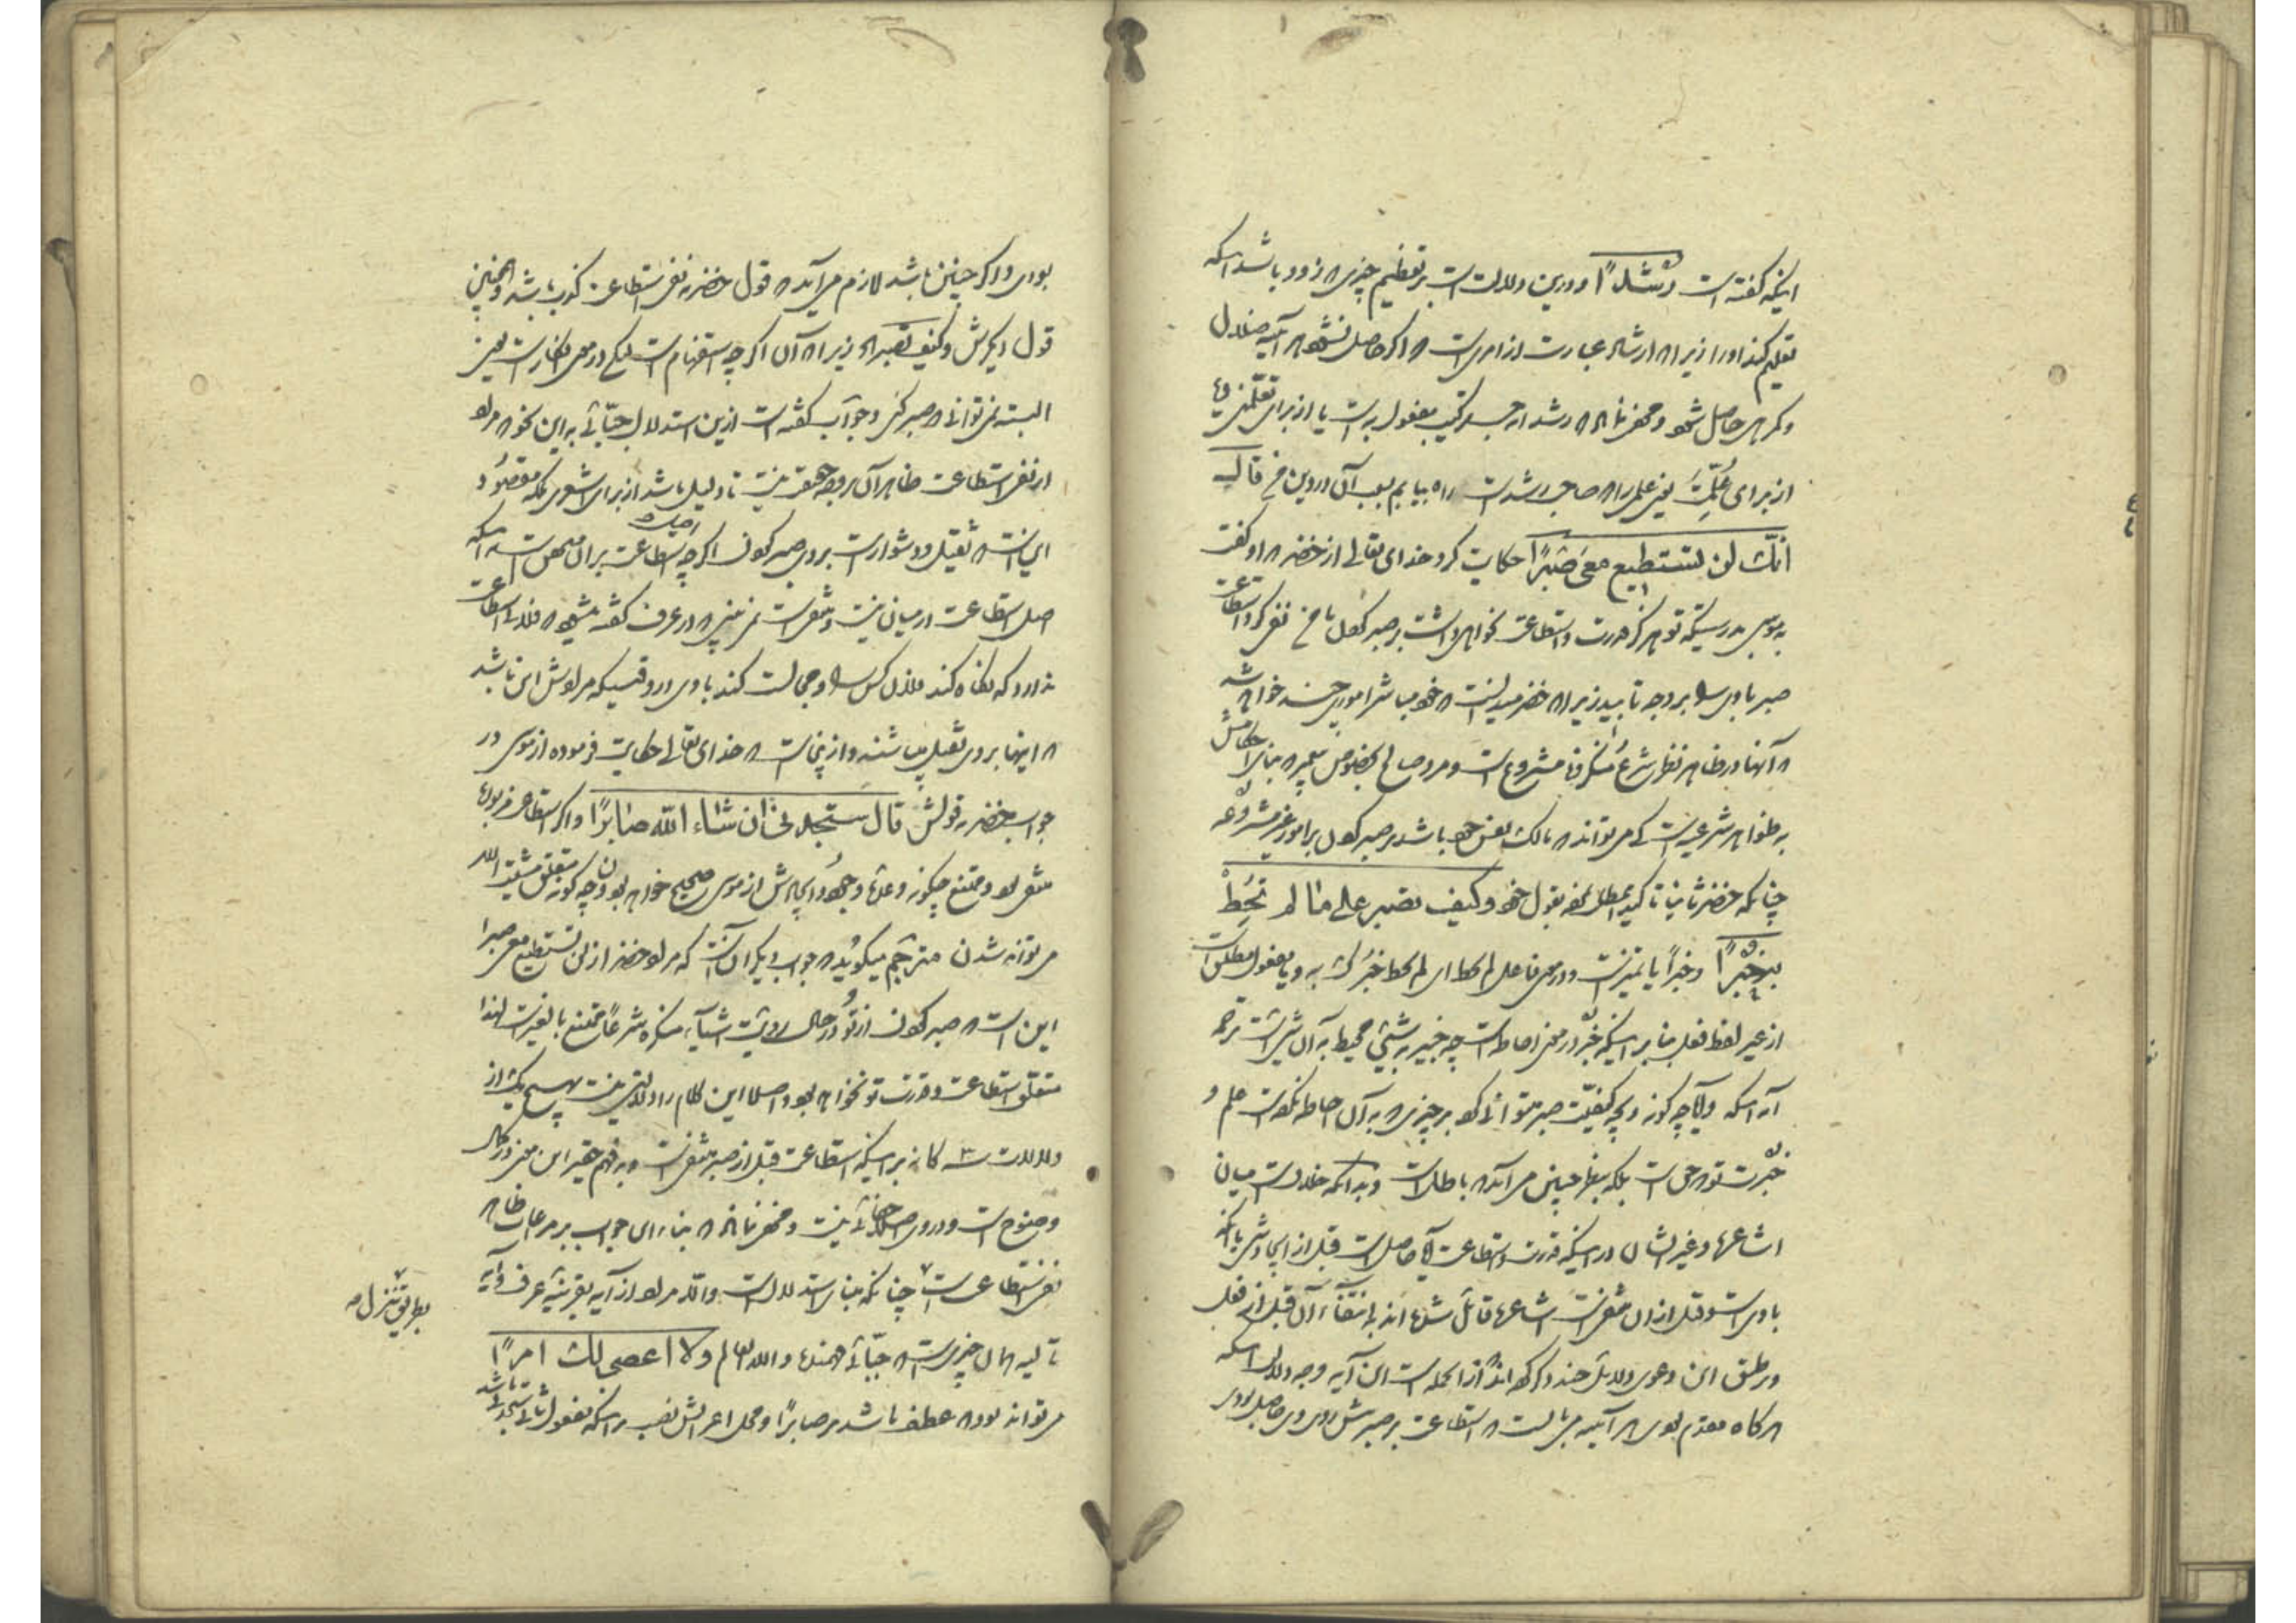 اینکه گفته است رُشْدًا و درین دلالت است بر تعظیم چیزی که زود باشد اینکه
تعلیم کند او را زیرا که ارشاد عبارت از امریست که اگر حاصل نشود هر آینه ضلال
و گمرهی حاصل شود و مخفی نماند که رشد از حیث ترکیب مفعول به است یا از برای تعلّمنی و یا
از برای عُلِّمتَ یعنی علمی را که صاحب رشد است راه بیابم بسبب آن در دین خود قال
انّک لن تستطیع معی صَبْرًا حکایت کرد خدای تعالی از خضر که او گفت
به موسی بدرستیکه تو هرگز قدرت و استطاعت نخواهی داشت بر صبر کردن با من نفی کرد استطاعت
صبر با وی را بر وجه تأبید زیرا که خضر میدانست که خود مباشر امور چند خواهد شد
که آنها در ظاهر نظر شرع مُنکر و نامشروع است و مرد صالح بخصوص پیغمبر که بنای احکامش
به ظواهر شرعیست کی می تواند که مالک نفس خود باشد بر صبر کردن بر امور غیر مشروعه
چنانکه خضر ثانیا تاکید مطلب نموده بقول خود وکیف تصبر علی ما لم تُحِطْ
بهِ خُبْرًا و خبراً یا تمیز است و در معنی فاعل لم تحط ای لم تحط خبرُک به و یا مفعول مطلق است
از غیر لفظ فعل بنا بر اینکه خُبر در معنی احاطه است چه خبیر به شیئی محیط به آن شئ است ترجمه
آیه اینکه و آیا چه گونه و بچه کیفیّت صبر میتوانی کرد بر چیزی که به آن احاطه نکرده است علم و
خُبرت تو که حق است بلکه بنظر چنین می آید که باطل است و بدانکه خلاف است میان
اشاعره و غیر ایشان در اینکه قدرت و استطاعت آیا حاصل است قبل از ایجاد شئ یا آنکه
با وی است و قبل از آن منتفی است اشاعره قائل شده اند به انتفاء آن قبل از فعل
و بر طبق این دعوی دلایل چند ذکر کرده اند از آنجمله است این آیه وجه دلالت اینکه
هر گاه مقدم بودی هر آینه می بایست که استطاعت بر صبرش روی وی حاصل بودی
بودی و اگر چنین باشد لازم می آید که قول خضر به نفی استطاعت کذب باشد و همچنین
قول دیگرش وکیف تصبر الخ زیرا که آن اگر چه استفهام است لیکن در معنی انکار است یعنی
البته نمی توانی که صبر کنی و جوآب گفته است ازین استدلال جبّائی به این نحو که مراد
از نفی استطاعت ظاهر آن بر وجه حقیقت نیست تا دلیل باشد از برای اشعری بلکه مقصُود
اینست که ثقیل و دشوار است بر وی صبر کردن اگر چه اصل استطاعت بر آن متمحض است نه اینکه
اصل استطاعت در میان نیست و منتفی است نمی بینی که در عرف گفته میشود که فلان استطاعت
ندارد که نگاه کند فلان کس را و مجالست کند با وی در وقتیکه مرادش این باشد
که اینها بر وی ثقیل میباشند و ازینجاست که خدای تعالی حکایت فرموده از موسی در
جواب خضر به قولش قال ستجدنی ان شاء الله صابرًا و اگر استطاعت مزبوره
منتفی بود و ممتنع چگونه وعدهٔ وجُود و ایجادش از موسی صحیح خواهد بود و چه گونه متعلق مشیّت الله
می تواند شدن مترجم میگوید که جواب دیگر آن است که مراد خضر از لن تستطیع معی صبرا
این است که صبر کردن از تو در حال رویت اشیآء منکره شرعاً ممتنع بالغیر است لهذا
متعلق استطاعت و قدرت تو نخواهد بود و اصلا این کلام را دلالتی نیست بهیچ یک از
دلالات سه گانه بر اینکه استطاعت قبل از صبر منتفی است و به فهم حقیر این معنی در کمال
وضوح است و در وی اصلا خفائی نیست و مخفی نماند که بناء این جواب بر مراعات ظاهر
نفی استطاعت است چنانکه بنای استدلال است والّا مراد از آیه بقرینهٔ عرف و آیه
بطریق تنزل صه
تالیه همان چیزیست که جبّائی فهمیده والله اعلم ولا اعصی لک امرًا
می تواند بود که عطف باشد بر صابرًا و محل اعرابش نصب بر اینکه مفعول ثانی ستجدنی باشد